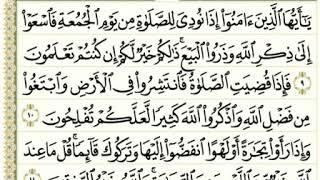 يَٰٓأَيُّهَا ٱلَّذِينَ ءَامَنُوٓا۟ إِذَا نُودِىَ لِلصَّلَوٰةِ مِن يَوْمِ ٱلْجُمُعَةِ فَٱسْعَوْا۟
إِلَىٰ ذِكْرِ ٱللَّهِ وَذَرُوا۟ ٱلْبَيْعَ ۚ ذَٰلِكُمْ خَيْرٌ لَّكُمْ إِن كُنتُمْ تَعْلَمُونَ
٩ فَإِذَا قُضِيَتِ ٱلصَّلَوٰةُ فَٱنتَشِرُوا۟ فِى ٱلْأَرْضِ وَٱبْتَغُوا۟
مِن فَضْلِ ٱللَّهِ وَٱذْكُرُوا۟ ٱللَّهَ كَثِيرًا لَّعَلَّكُمْ تُفْلِحُونَ ١٠
وَإِذَا رَأَوْا۟ تِجَٰرَةً أَوْ لَهْوًا ٱنفَضُّوٓا۟ إِلَيْهَا وَتَرَكُوكَ قَآئِمًا ۚ قُلْ مَا عِندَ